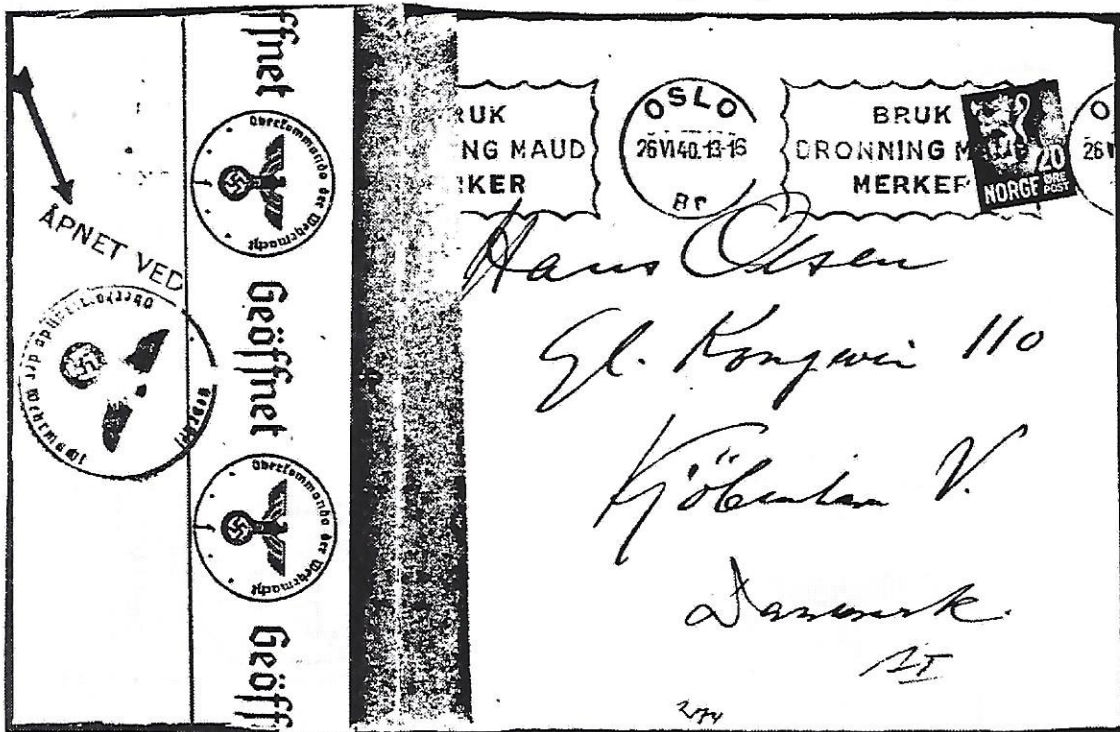 ffnet
Oberkommando der Wehrmacht
Geöffnet
Oberkommando der Wehrmacht
Geöff
ÅPNET VED
Oberkommando der Wehrmacht
RUK
NG MAUD
RKER
OSLO
26 VI 40. 13-16
Br
BRUK
DRONNING M
MERKER
NORGE 20 ØRE
POST
O
26 V
Hans Olsen
Gl. Kongevei 110
Kjöbenhavn V.
Danmark.